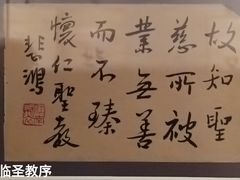 故知聖
慈所被
業無善
而不臻
懷仁聖教
悲鴻
临圣教序